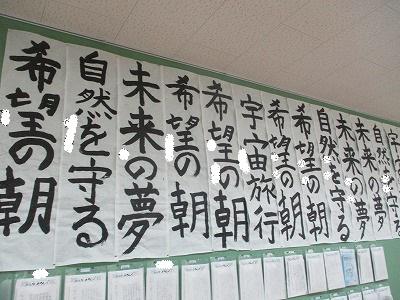 希望の朝
自然を守る
未来の夢
希望の朝
希望の朝
宇宙旅行
希望の朝
希望の朝
自然を守る
未来の夢
未来の夢
自然を守る